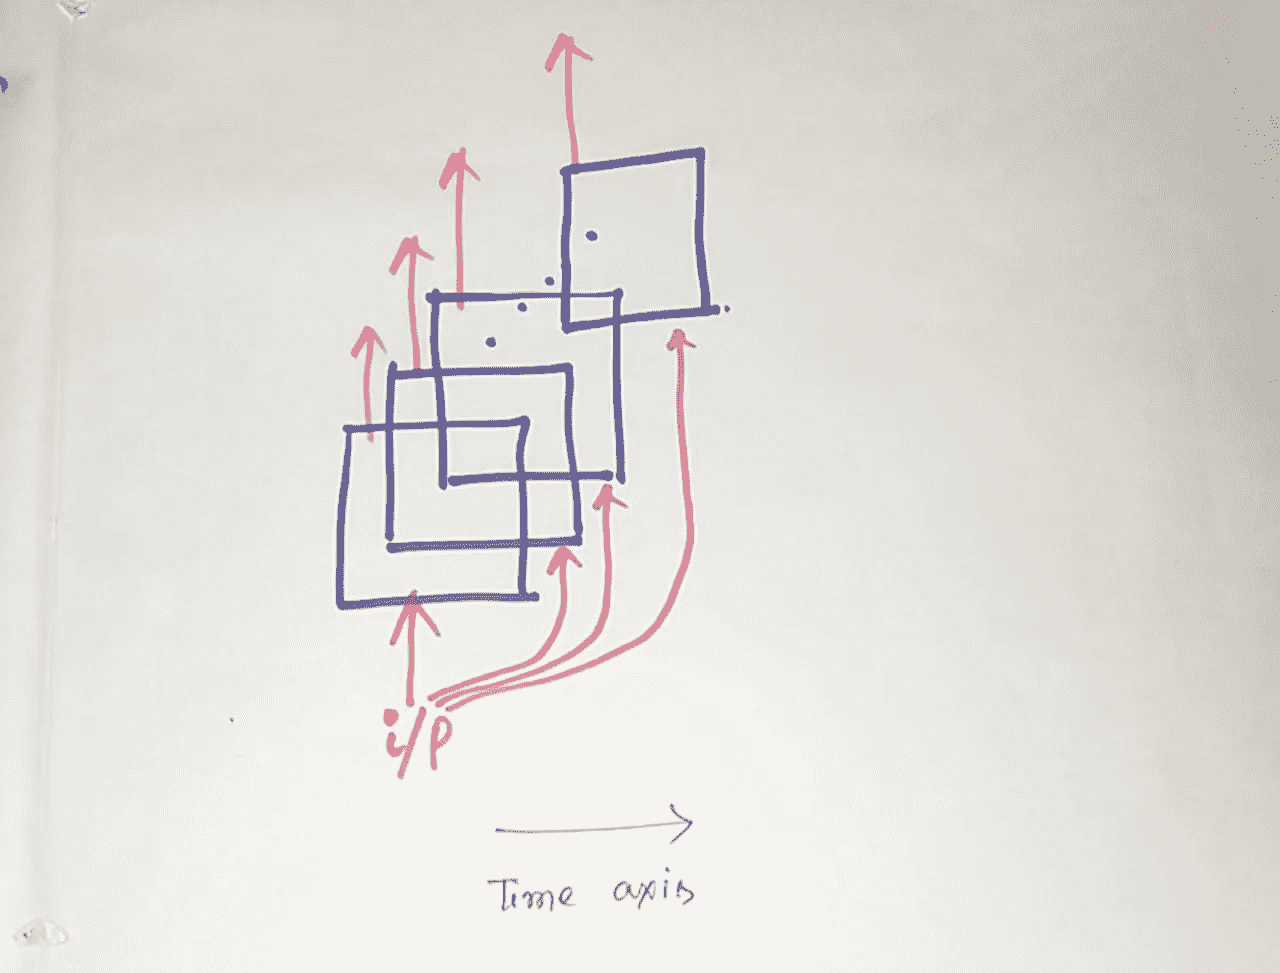 i/p
Time axis